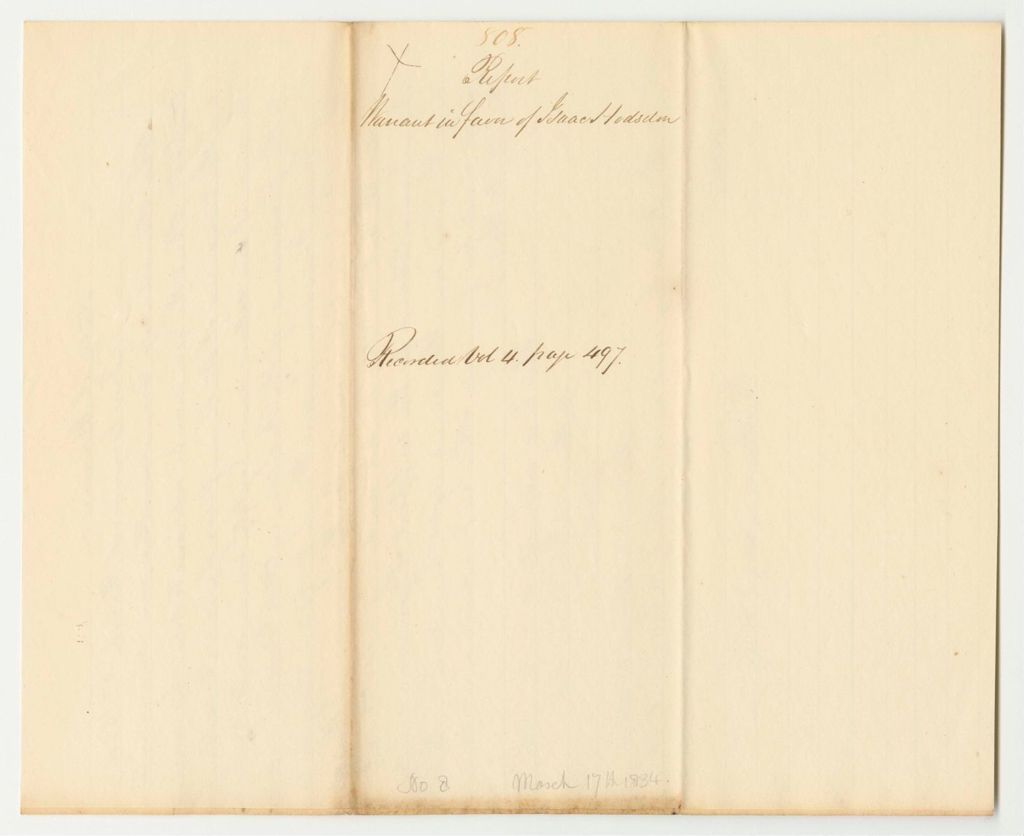 508.
Report
Warrant in favor of Isaac Hodsdon
Recorded Vol 4. page 497.
No 8 March 17th 1834.